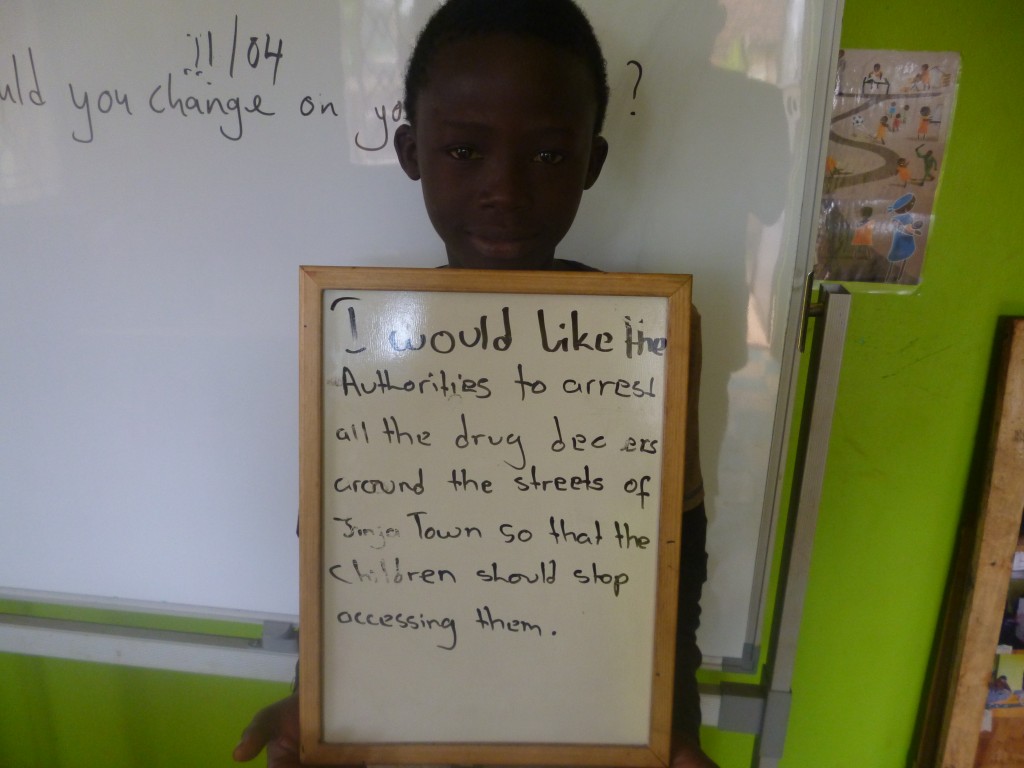 11/04
uld you change on yo ?
I would like the
Authorities to arrest
all the drug
around the streets of
Jinja Town so that the
children should stop
accessing them.